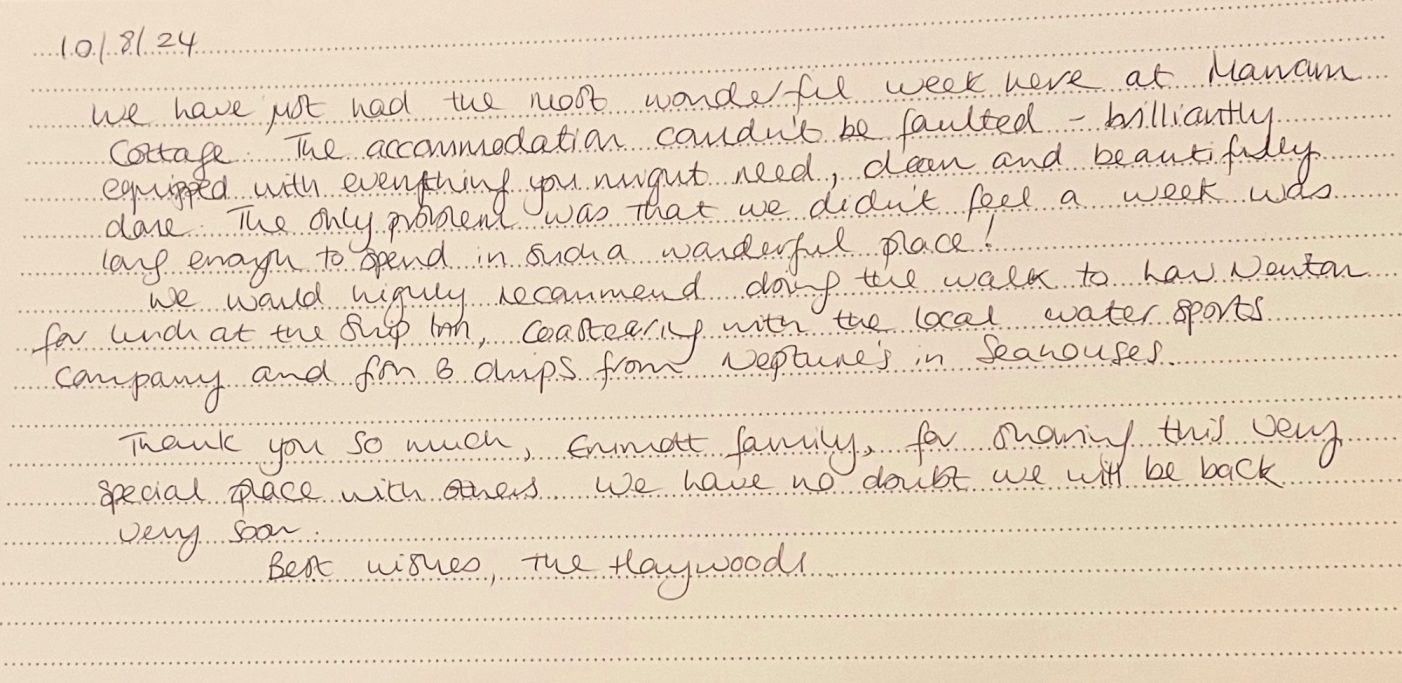 10/8/24
We have just had the most wonderful week here at Marram
Cottage. The accommodation couldn't be faulted - brilliantly
equipped with everything you might need, clean and beautifully
done. The only problem was that we didn't feel a week was
long enough to spend in such a wonderful place!
We would highly recommend doing the walk to Low Newton
for lunch at the Ship Inn, coasteering with the local water sports
company and fish & chips from Neptune's in Seahouses.
Thank you so much, Emmott family, for sharing this very
special place with others. We have no doubt we will be back
very soon.
Best wishes, The Haywoods